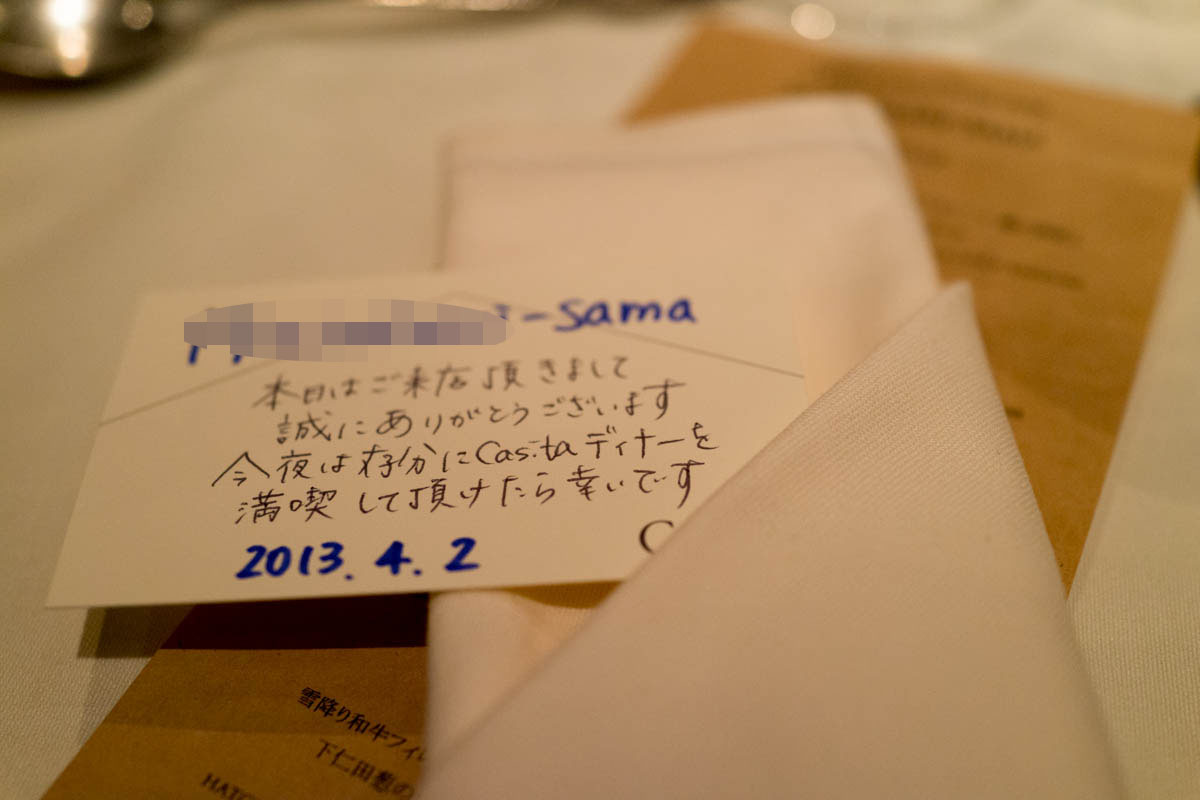 -sama
本日はご来店頂きまして
誠にありがとうございます
今夜は存分にCasitaディナーを
満喫して頂けたら幸いです
2013.4.2
C
雪降り和牛フィレ
下仁田葱の
HATO